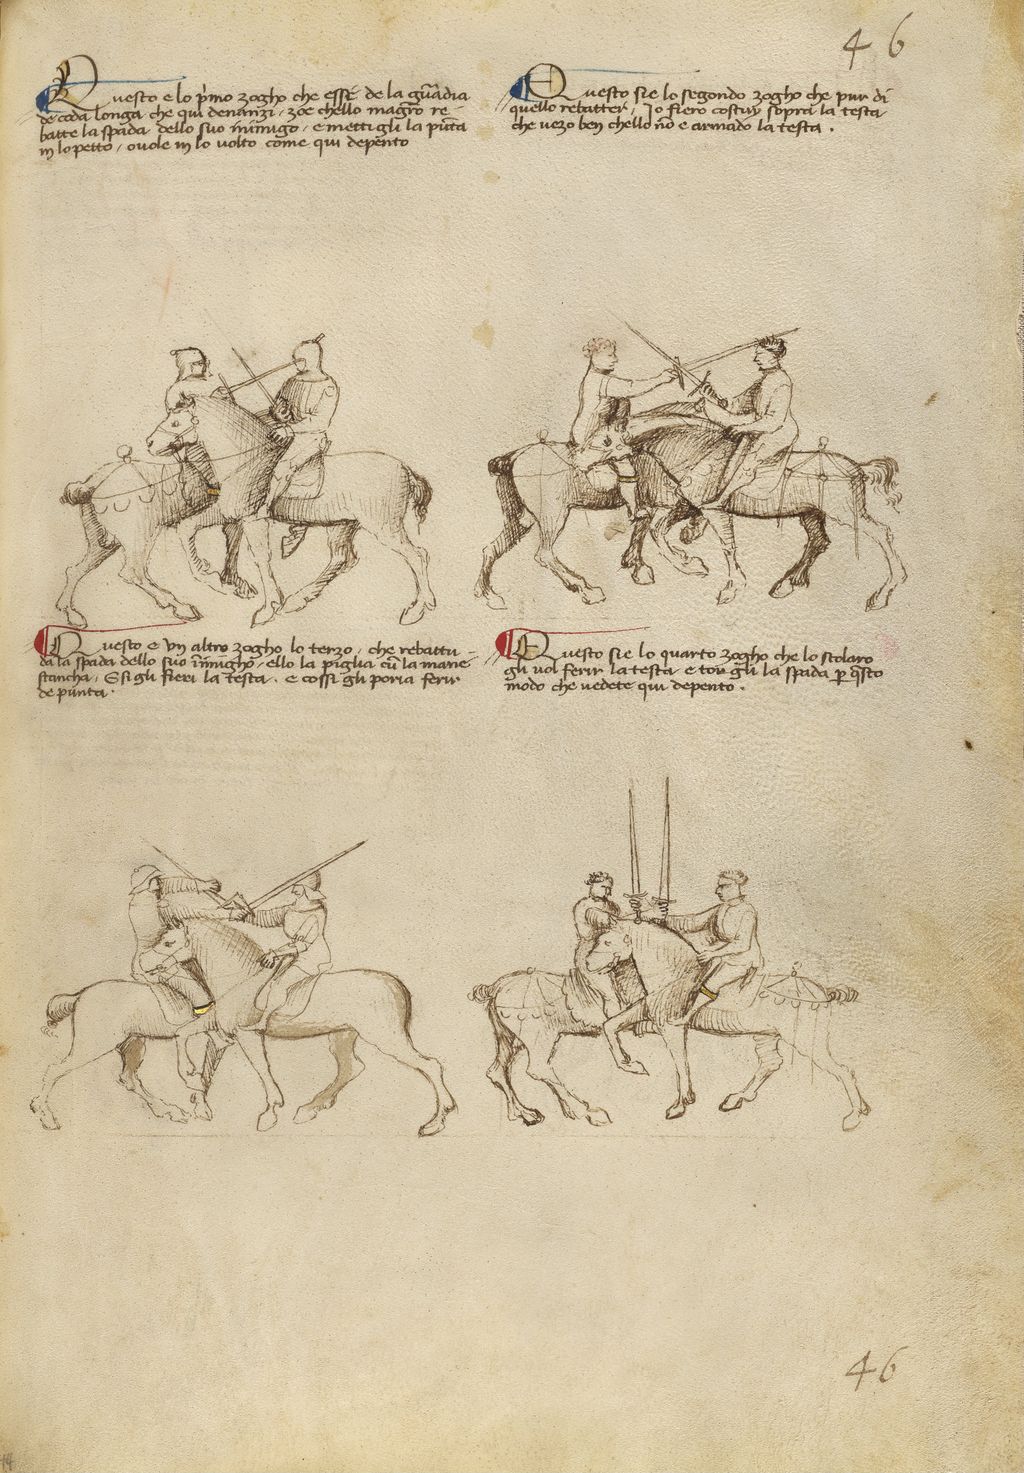 46
Questo e lo p̄mo zogho che esse de la gūadia
de coda longa che qui denanzi, zoe chello magr̄o re-
batte la spada dello suo inimigo, e mettigli la pūta
in lo petto, ovole in lo volto come qui depento
Questo sie lo segondo zogho che pur di
quello rebatter, Io fiero costuy sopra la testa
che vezo ben chello nō e armado la testa.
Questo e un altro zogho lo terzo, che rebattu-
da la spada dello suo inimigho, ello la piglia cū la mane
stancha, E si gli fieri la testa. e cossi gli poria ferir
de punta.
Questo sie lo quarto zogho che lo scolaro
gli vol ferir la testa e tor gli la spada p q̄sto
modo che vedete qui depento.
46